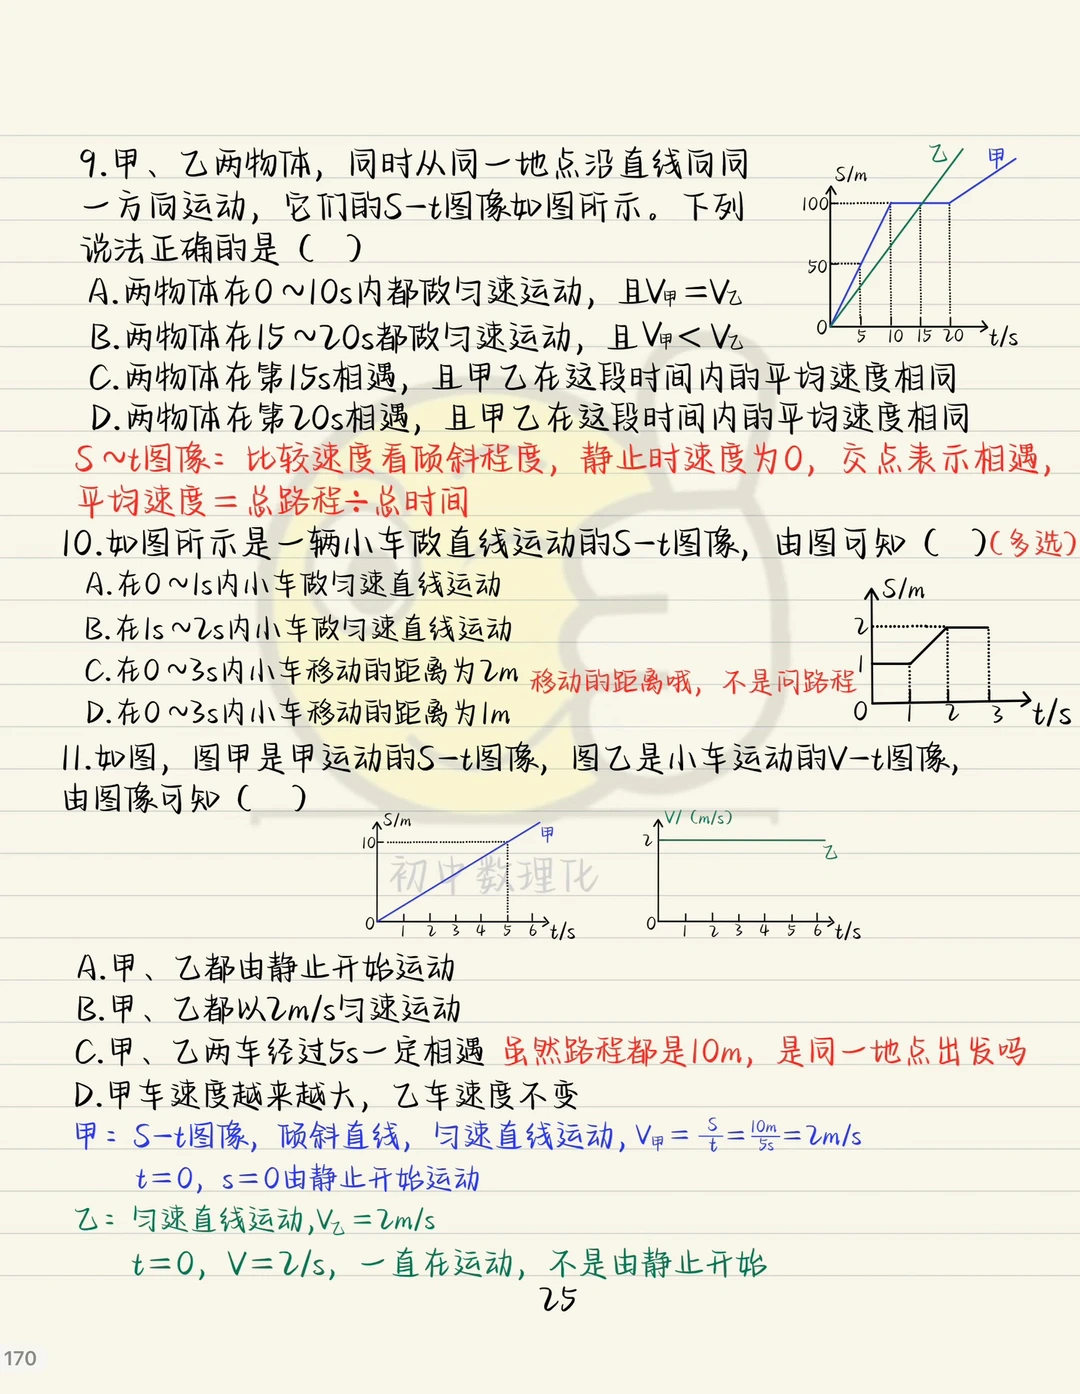 9.甲、乙两物体，同时从同一地点沿直线向同
一方向运动，它们的S-t图像如图所示。下列
说法正确的是（ ）
A.两物体在0~10s内都做匀速运动，且V甲=V乙
B.两物体在15~20s都做匀速运动，且V甲<V乙
C.两物体在第15s相遇，且甲乙在这段时间内的平均速度相同
D.两物体在第20s相遇，且甲乙在这段时间内的平均速度相同
S/m
乙
甲
100
50
0
5 10 15 20 t/s
S~t图像：比较速度看倾斜程度，静止时速度为0，交点表示相遇，
平均速度=总路程÷总时间
10.如图所示是一辆小车做直线运动的S-t图像，由图可知（ ）(多选)
A.在0~1s内小车做匀速直线运动
B.在1s~2s内小车做匀速直线运动
C.在0~3s内小车移动的距离为2m 移动的距离哦，不是问路程
D.在0~3s内小车移动的距离为1m
S/m
2
1
0 1 2 3 t/s
11.如图，图甲是甲运动的S-t图像，图乙是小车运动的V-t图像，
由图像可知（ ）
S/m
10
甲
0 1 2 3 4 5 6 t/s
V/（m/s）
2
乙
0 1 2 3 4 5 6 t/s
初中数理化
A.甲、乙都由静止开始运动
B.甲、乙都以2m/s匀速运动
C.甲、乙两车经过5s一定相遇 虽然路程都是10m，是同一地点出发吗
D.甲车速度越来越大，乙车速度不变
甲：S-t图像，倾斜直线，匀速直线运动，V甲=s/t=10m/5s=2m/s
t=0，s=0由静止开始运动
乙：匀速直线运动，V乙=2m/s
t=0，V=2/s，一直在运动，不是由静止开始
25
170